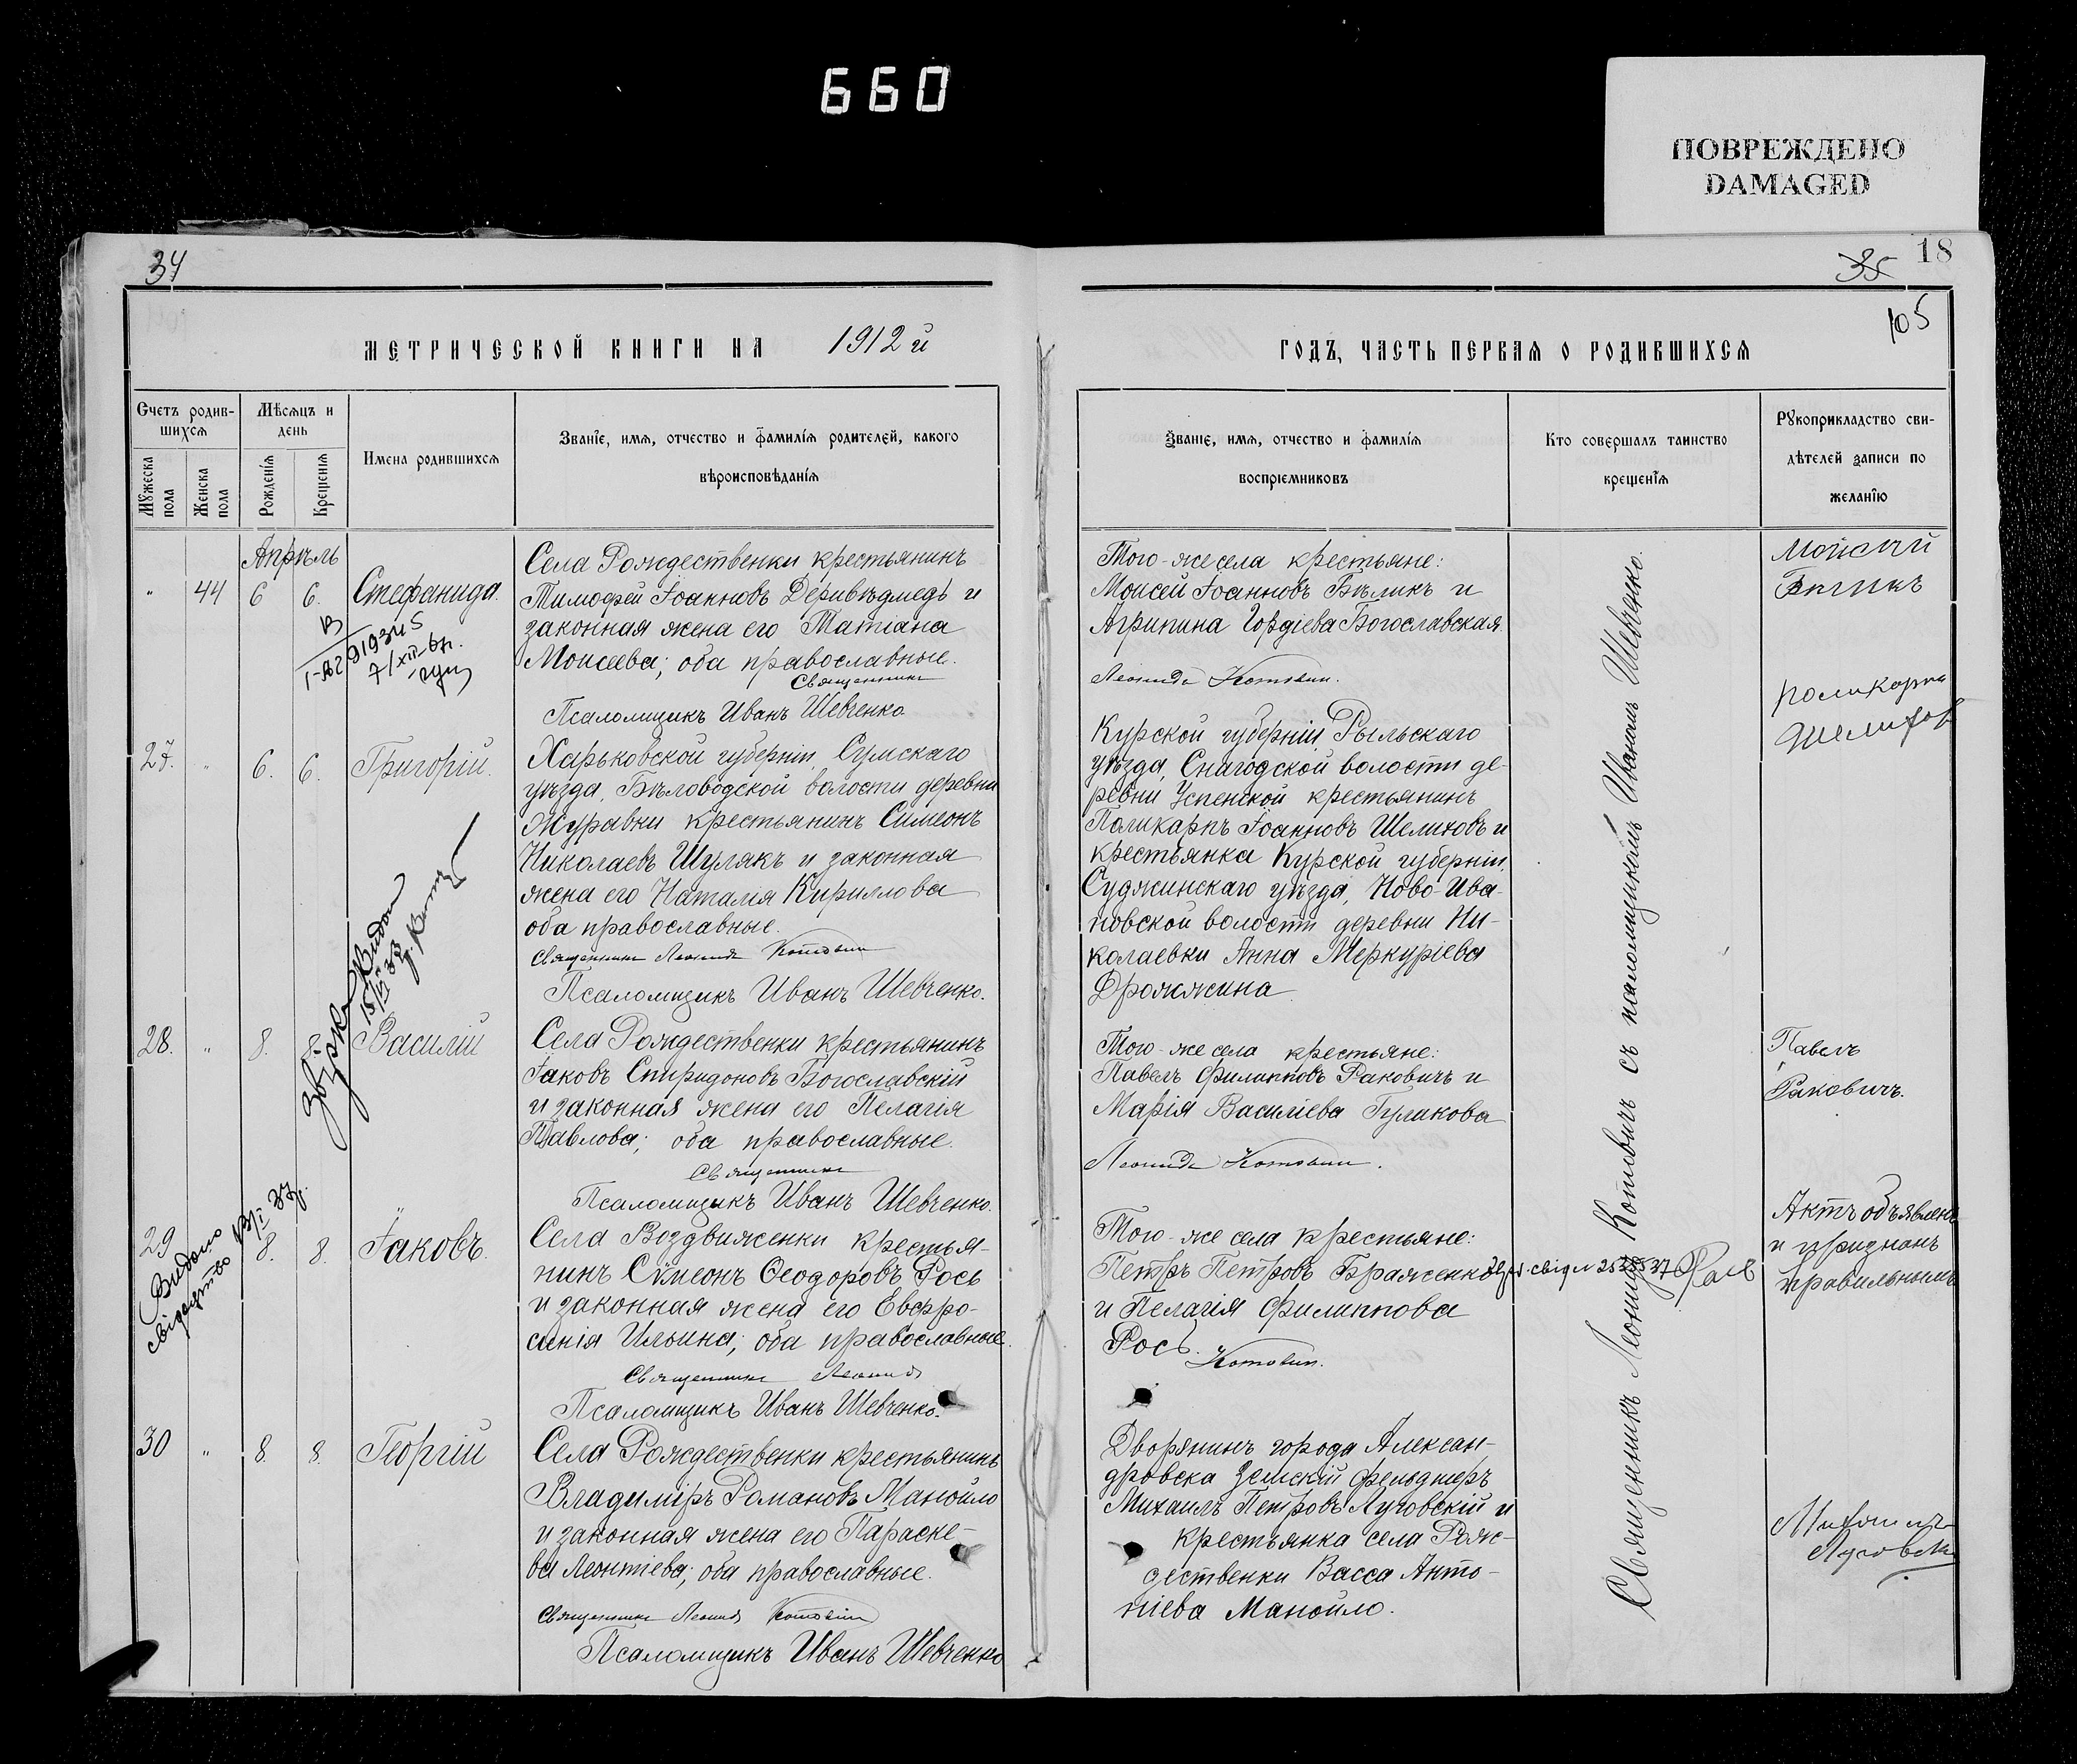 660
ПОВРЕЖДЕНО
DAMAGED
34
МЕТРИЧЕСКОЙ КНИГИ НА 1912 й
Счетъ родив-
шихся
Мѣсяцъ и
день
Мужеска пола
Женска пола
Рожденія
Крещенія
Имена родившихся
Званіе, имя, отчество и фамилія родителей, какого
вѣроисповѣданія
Апрѣль
" 44 6 6. Стефанида.
Села Рождественки крестьянинъ
Тимофей Іоанновъ Деривѣдмедь и
законная жена его Татіана
Моисеева; оба православные.
Священникъ
Псаломщикъ Иванъ Шевченко
27. " 6. 6. Григорій.
Харьковской губерніи, Сумскаго
уѣзда, Бѣловодской волости деревни
Журавки крестьянинъ Симеонъ
Николаевъ Шулякъ и законная
жена его Наталія Кириллова
оба православные.
Священникъ Леонидъ Котовичъ
Псаломщикъ Иванъ Шевченко.
28. " 8. 8. Василій
Села Рождественки крестьянинъ
Іаковъ Спиридоновъ Богославскій
и законная жена его Пелагія
Павлова; оба православные.
Священникъ
Псаломщикъ Иванъ Шевченко.
Видано
свідоцтво
29 " 8. 8. Іаковъ.
Села Воздвиженки крестья-
нинъ Сѵмеонъ Ѳеодоровъ Рось
и законная жена его Евфро-
синія Ильина; оба православные.
Священникъ Леонидъ
Псаломщикъ Иванъ Шевченко.
30 " 8. 8. Георгій
Села Рождественки крестьянинъ
Владиміръ Романовъ Манойло
и законная жена его Параске-
ва Леонтіева; оба православные.
Священникъ Леонидъ Котовичъ
Псаломщикъ Иванъ Шевченко
35 18
105
ГОДЪ, ЧАСТЬ ПЕРВАЯ О РОДИВШИХСЯ
Званіе, имя, отчество и фамилія
воспріемниковъ
Кто совершалъ таинство
крещенія
Рукоприкладство сви-
дѣтелей записи по
желанію
Того-же села крестьяне:
Моисей Іоанновъ Бѣликъ и
Агрипина Гордіева Богославская.
Леонидъ Котовичъ.
Курской губерніи Рыльскаго
уѣзда, Снагодской волости де-
ревни Успенской крестьянинъ
Поликарпъ Іоанновъ Шелиховъ и
крестьянка Курской губерніи,
Суджинскаго уѣзда, Ново-Ива-
новской волости деревни Ни-
колаевки Анна Меркуріева
Дрожжина
Того-же села крестьяне:
Павелъ Филипповъ Раковичъ и
Марія Василіева Гуликова
Леонидъ Котовичъ.
Того-же села крестьяне:
Петръ Петровъ Браженко
и Пелагія Филиппова
Рось.
Котовичъ.
Дворянинъ города Алексан-
дровска Земскій фельдшеръ
Михаилъ Петровъ Луговскій и
крестьянка села Рож-
дественки Васса Анто-
ніева Манойло.
Священникъ Леонидъ Котовичъ съ псаломщикомъ Иваномъ Шевченко.
Мойсий
Бѣликъ
Поликарпъ
Шелихов
Павелъ
Раковичъ.
Актъ объявленъ
и признанъ
правильнымъ
Михаилъ
Луговскій